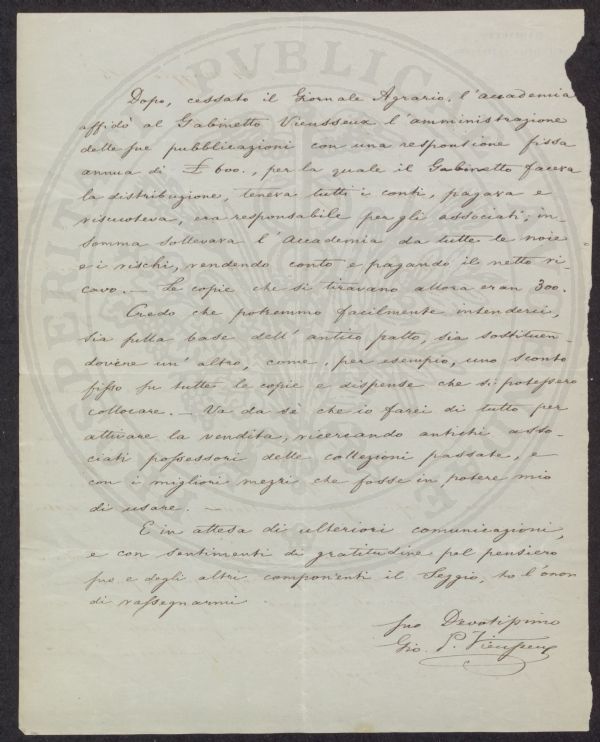 Dopo, cessato il Giornale Agrario, l'accademia
affidò al Gabinetto Vieusseux l'amministrazione
delle sue pubblicazioni con una responsione fissa
annua di £ 600., per la quale il Gabinetto faceva
la distribuzione, teneva tutti i conti, pagava e
riscuoteva, era responsabile per gli associati, in-
somma sollevava l'Accademia da tutte le noie
e i rischi, rendendo conto e pagando il netto ri-
cavo. — Le copie che si tiravano allora eran 300.
Credo che potremmo facilmente intenderci,
sia sulla base dell'antico patto, sia sostituen-
dovene un'altro, come, per esempio, uno sconto
fisso su tutte le copie e dispense che si potessero
collocare. — Va da sè che io farei di tutto per
attivare la vendita, ricercando antichi asso-
ciati possessori delle collezioni passate, e
con i migliori mezzi che fosse in potere mio
di usare. —
E in attesa di ulteriori comunicazioni,
e con sentimenti di gratitudine pel pensiero
suo e degli altri componenti il Seggio, ho l'onor
di rassegnarmi
Suo Devotissimo
Gio. P. Vieusseux
PVBLICAE
PROSPERITATI